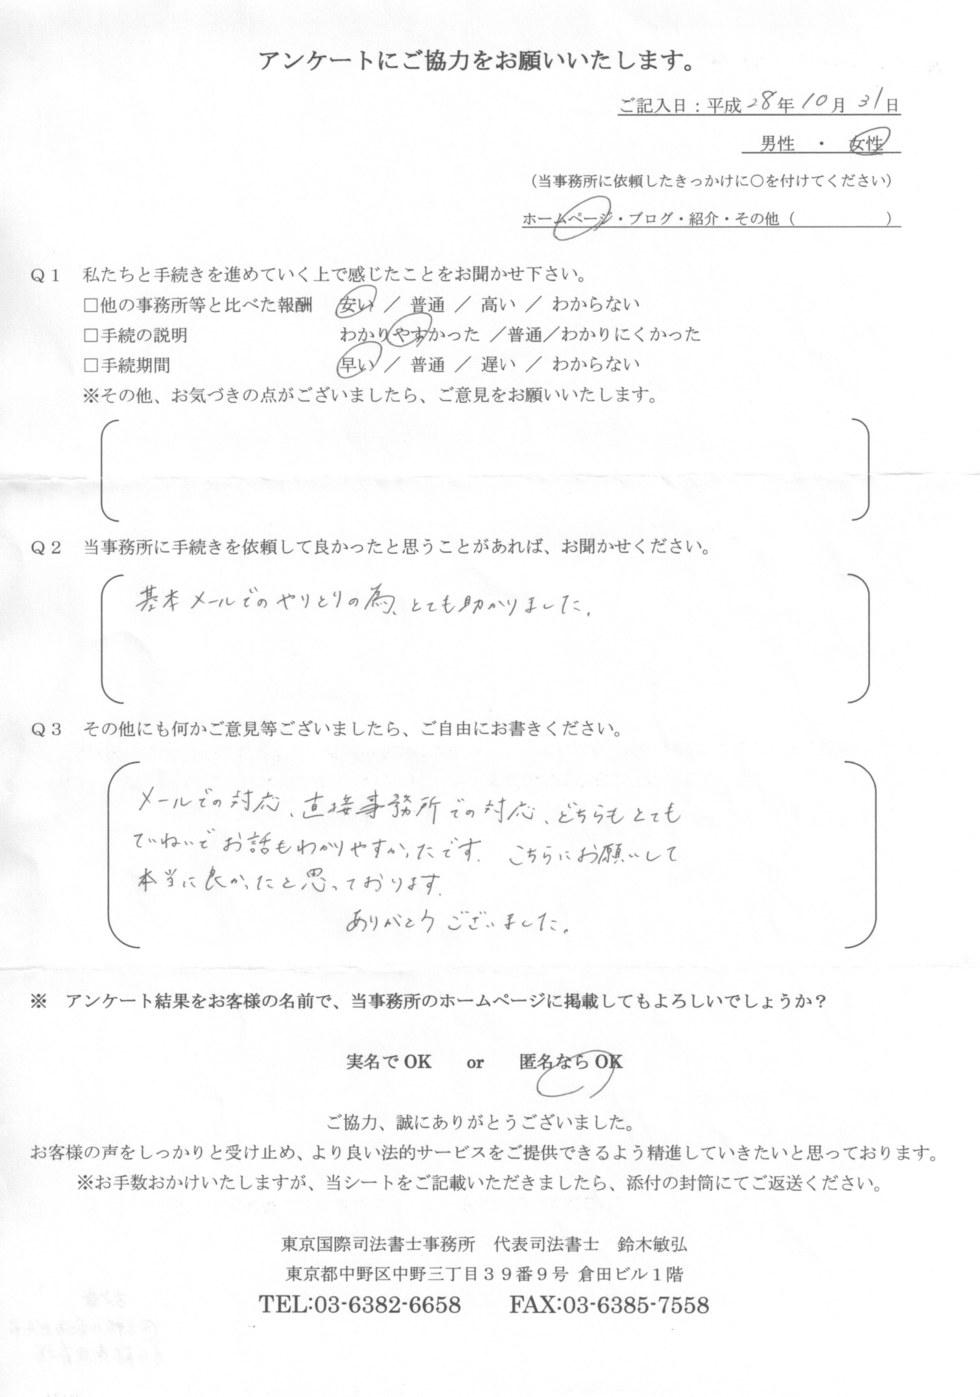 アンケートにご協力をお願いいたします。
ご記入日：平成28年10月31日
男性　・　女性
（当事務所に依頼したきっかけに〇を付けてください）
ホームページ・ブログ・紹介・その他（　　　　　）
Ｑ１　私たちと手続きを進めていく上で感じたことをお聞かせ下さい。
□他の事務所等と比べた報酬　安い ／ 普通 ／ 高い ／ わからない
□手続の説明　わかりやすかった ／普通／わかりにくかった
□手続期間　早い ／ 普通 ／ 遅い ／ わからない
※その他、お気づきの点がございましたら、ご意見をお願いいたします。
Ｑ２　当事務所に手続きを依頼して良かったと思うことがあれば、お聞かせください。
基本メールでのやりとりの為、とても助かりました。
Ｑ３　その他にも何かご意見等ございましたら、ご自由にお書きください。
メールでの対応、直接事務所での対応、どちらもとても
ていねいでお話もわかりやすかったです。こちらにお願いして
本当に良かったと思っております。
ありがとうございました。
※　アンケート結果をお客様の名前で、当事務所のホームページに掲載してもよろしいでしょうか？
実名でOK　or　匿名ならOK
ご協力、誠にありがとうございました。
お客様の声をしっかりと受け止め、より良い法的サービスをご提供できるよう精進していきたいと思っております。
※お手数おかけいたしますが、当シートをご記載いただきましたら、添付の封筒にてご返送ください。
東京国際司法書士事務所　代表司法書士　鈴木敏弘
東京都中野区中野三丁目３９番９号 倉田ビル１階
TEL:03-6382-6658　FAX:03-6385-7558